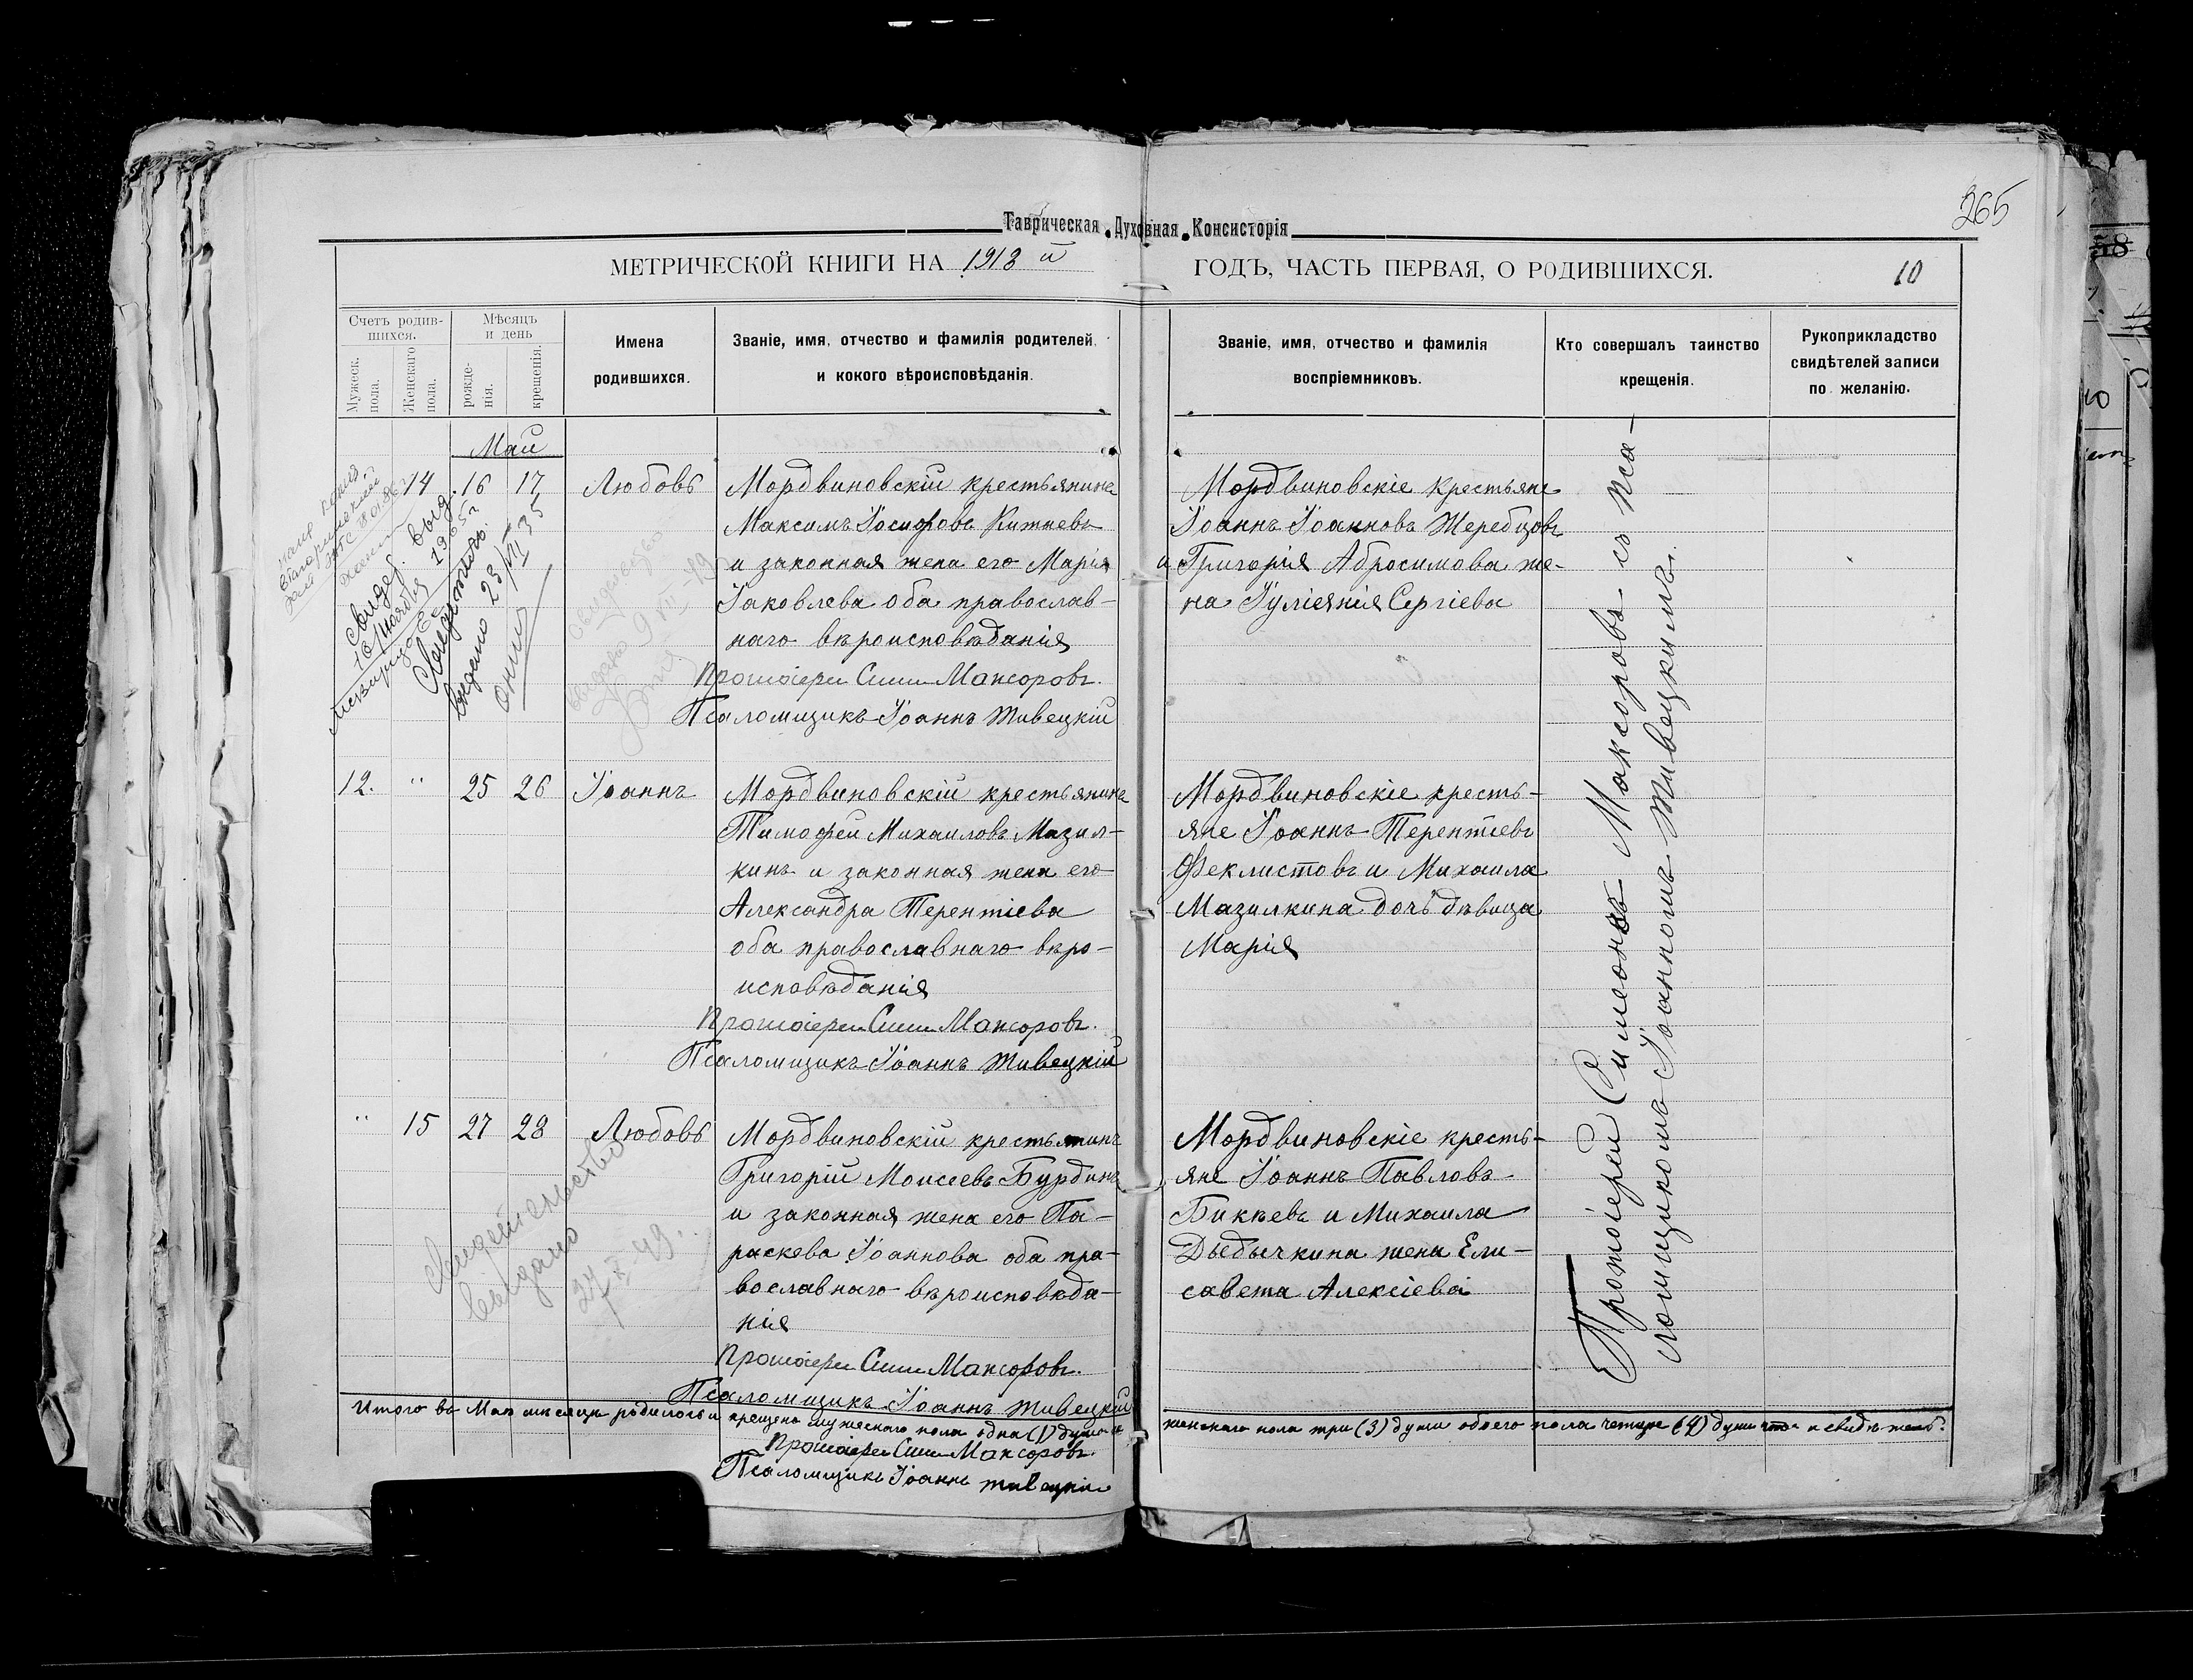 265
Таврическая Духовная Консисторія
МЕТРИЧЕСКОЙ КНИГИ НА 1913 й ГОДЪ, ЧАСТЬ ПЕРВАЯ, О РОДИВШИХСЯ.
10
Счетъ родив-
шихся.
Мужеск. пола.
Женскаго пола.
Мѣсяцъ
и день
рожде-
нія.
крещенія.
Имена
родившихся.
Званіе, имя, отчество и фамилія родителей,
и кокого вѣроисповѣданія.
Званіе, имя, отчество и фамилія
воспріемниковъ.
Кто совершалъ таинство
крещенія.
Рукоприкладство
свидѣтелей записи
по желанію.
Май
14 16 17 Любовь
Мордвиновскій крестьянинъ
Максимъ Іосифовъ
и законная жена его Марія
Іаковлева оба православ-
наго вѣроисповѣданія
Протоіерей Сим Максоровъ.
Псаломщикъ Іоаннъ Живецкій
Мордвиновскіе крестьяне
Іоаннъ Іоанновъ Жеребцовъ
и Григорія Абросимова же-
на Іуліянія Сергіева
свидет. выд.
Свидеттво.
выдано 23/VII 35
12. " 25 26 Іоаннъ
Мордвиновскій крестьянинъ
Тимофей Михаиловъ Мазил-
кинъ и законная жена его
Александра Терентіева
оба православнаго вѣро-
исповѣданія
Протоіерей Сим Максоровъ.
Псаломщикъ Іоаннъ Живецкій
Мордвиновскіе кресть-
яне Іоаннъ Терентіевъ
Феклистовъ и Михаила
Мазилкина дочь дѣвица
Марія
" 15 27 28 Любовь
Мордвиновскій крестьянинъ
Григорій Моисеевъ Бурдинъ
и законная жена его Па-
раскева Іоаннова оба пра-
вославнаго вѣроисповѣда-
нія
Протоіерей Сим Максоровъ.
Псаломщикъ Іоаннъ Живецкій
Мордвиновскіе кресть-
яне Іоаннъ Павловъ
Бикѣевъ и Михаила
Дыдычкина жена Ели-
савета Алексіева
Свидетельство
выдано
27 X 49.
Протоіерей Симеонъ Максоровъ съ пса-
ломщикомъ Іоанномъ Живецкимъ.
Итого въ Маѣ мѣсяцѣ родилось и крещено мужескаго пола одна (1) душа и женскаго пола три (3) души обоего пола четыре (4) души что и свидѣтел.
Протоіерей Сим Максоровъ.
Псаломщикъ Іоаннъ Живецкій